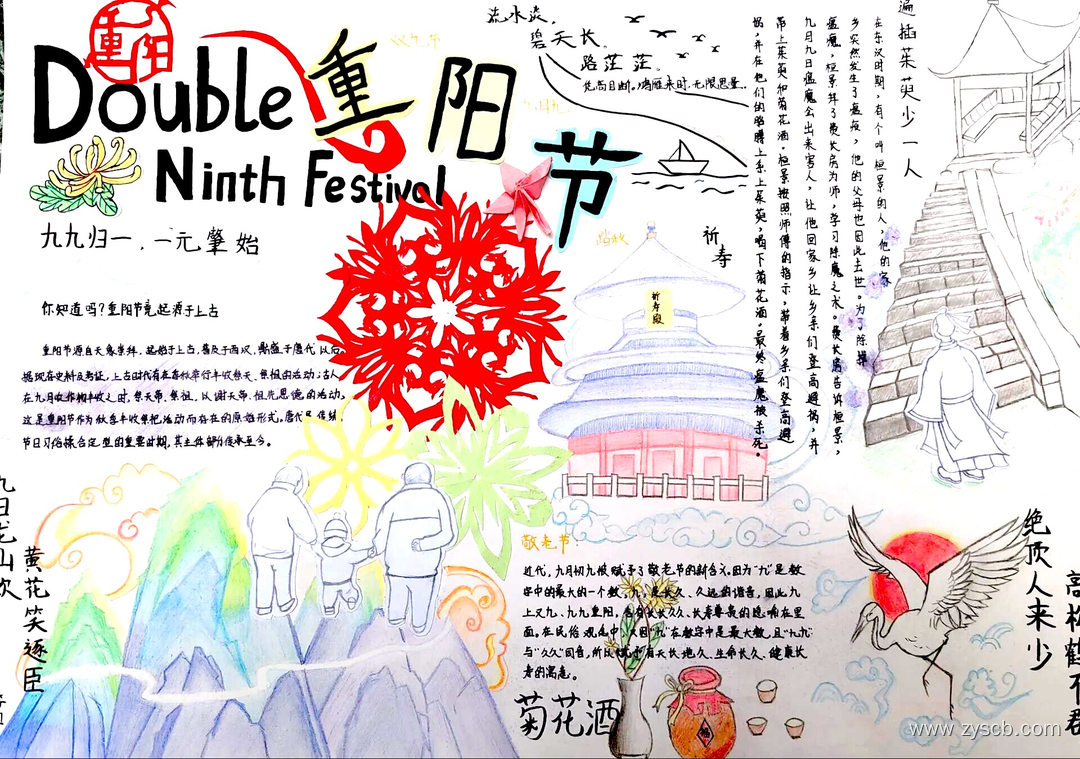 重阳
Double
重阳节
Ninth Festival
九九归一，一元肇始
双九节
流水淡，
碧天长。
路茫茫。
凭高目断。鸿雁来时，无限思量。
你知道吗？重阳节竟起源于上古
重阳节源自天象崇拜，起始于上古，普及于西汉，鼎盛于唐代以后。
据现存史料及考证，上古时代有在春秋举行丰收祭天、祭祖的活动；古人
在九月农作物丰收之时，祭天帝、祭祖，以谢天帝、祖先恩德的活动。
这是重阳节作为秋季丰收祭祀活动而存在的原始形式。唐代是传统
节日习俗揉合定型的重要时期，其主体部分传承至今。
祈寿
祈年殿
遍插茱萸少一人
在东汉时期，有个叫桓景的人，他的家
乡突然发生了瘟疫，他的父母也因此去世。为了除掉
瘟魔，桓景拜了费长房为师，学习除魔之术。费长房告诉桓景，
九月九日瘟魔会出来害人，让他回家乡让乡亲们登高避祸，并
带上茱萸和菊花酒。桓景按照师傅的指示，带着乡亲们登高避
祸，并在他们的胳膊上系上茱萸，喝下菊花酒。最终，瘟魔被杀死。
九日龙山饮
黄花笑逐臣
敬老节：
近代，九月初九被赋予了敬老节的新含义。因为“九”是数
字中的最大的一个数，九，是长久、久远的谐音，因此九
上又九，九九重阳，
面。在民俗观念中，又因“九”在数字中是最大数，且“九九”
与“久久”同音，所以赋予有天长地久、生命长久、健康长
寿的寓意。
菊花酒
绝顶人来少
高松鹤不群
www.zyscb.com